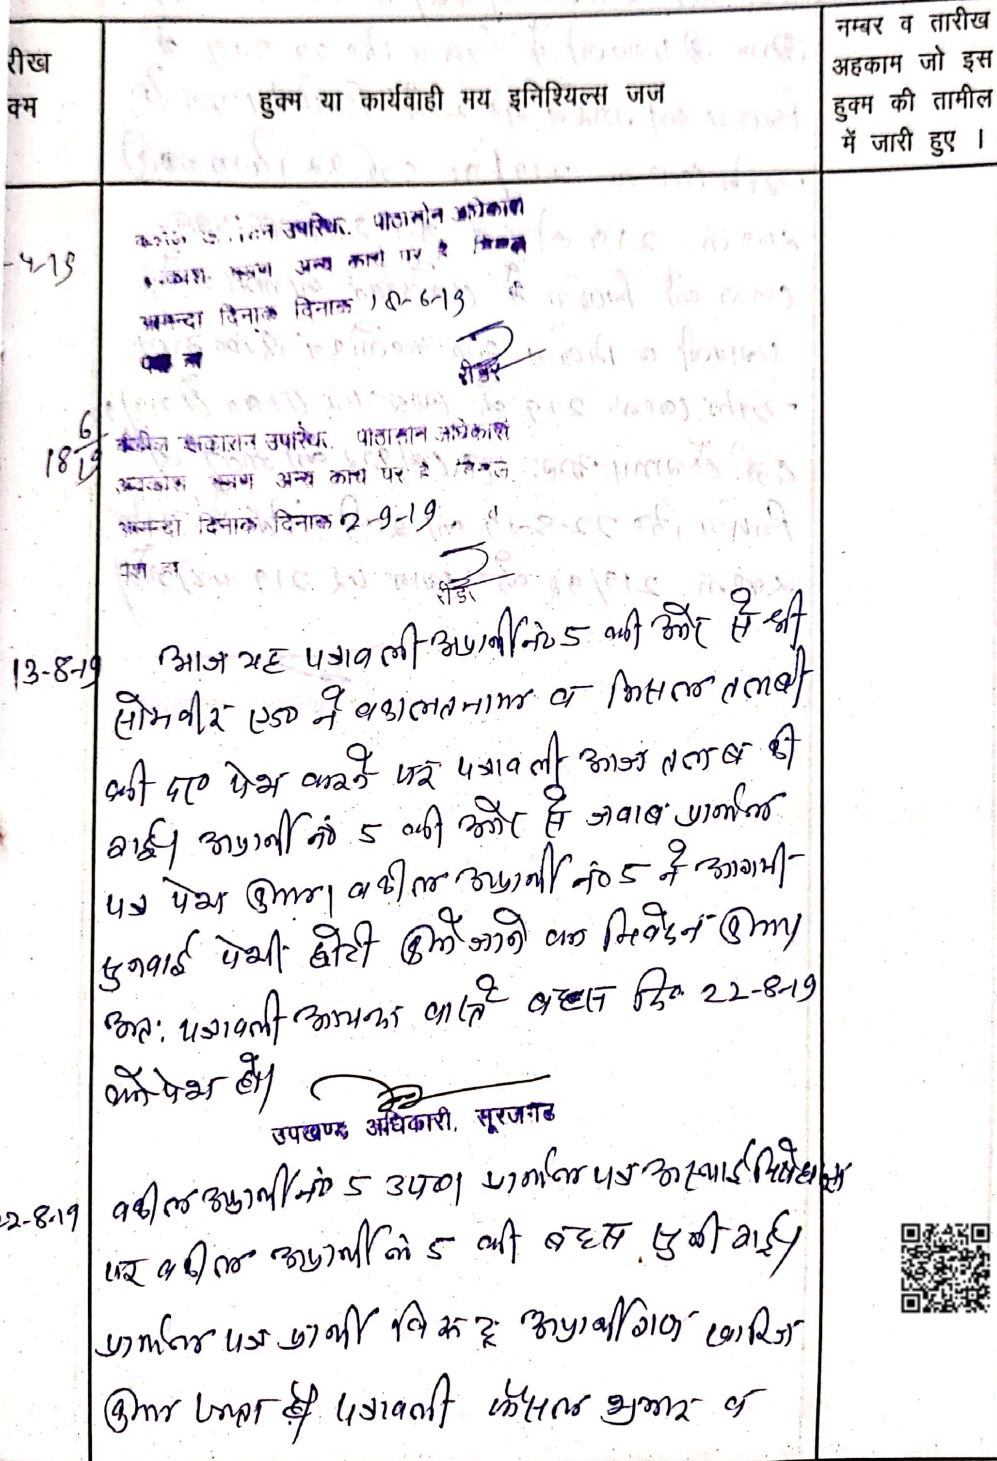 रीख
क्म
हुक्म या कार्यवाही मय इनिश्यिल्स जज
नम्बर व तारीख
अहकाम जो इस
हुक्म की तामील
में जारी हुए ।
-4-19
उपस्थि. पीठासीन अधिकारी
अन्य कार्य पर है
दिनांक दिनांक 18-6-19
रीडर
18 6/19
उपस्थि. पीठासीन अधिकारी
अवकाश भ्रमण अन्य कार्य पर है
आयन्दा दिनांक दिनांक 2-9-19
पेश हो
रीडर
13-8-19
आज यह पत्रावली अप्रार्थी नं० 5 की ओर से श्री
सोमवीर एड० ने वकालतनामा व मिसल तलबी
की द० पेश करने पर पत्रावली आज तलब की
गई। अप्रार्थी नं 5 की ओर से जवाब प्रार्थना
पत्र पेश किया। वकील अप्रार्थी नं० 5 ने आगामी
सुनवाई पेशी छोटी किये जाने का निवेदन किया
अत: पत्रावली आयन्दा वास्ते बहस दि० 22-8-19
को पेश हो।
उपखण्ड अधिकारी, सूरजगढ
2-8-19
वकील अप्रार्थी नं० 5 उप०। प्रार्थना पत्र अस्थाई निषेधाज्ञा
पर वकील अप्रार्थी नं 5 की बहस सुनी गई।
प्रार्थना पत्र प्रार्थी विरूद्ध अप्रार्थीगण खारिज
किया जाता है। पत्रावली फैसल शुमार व